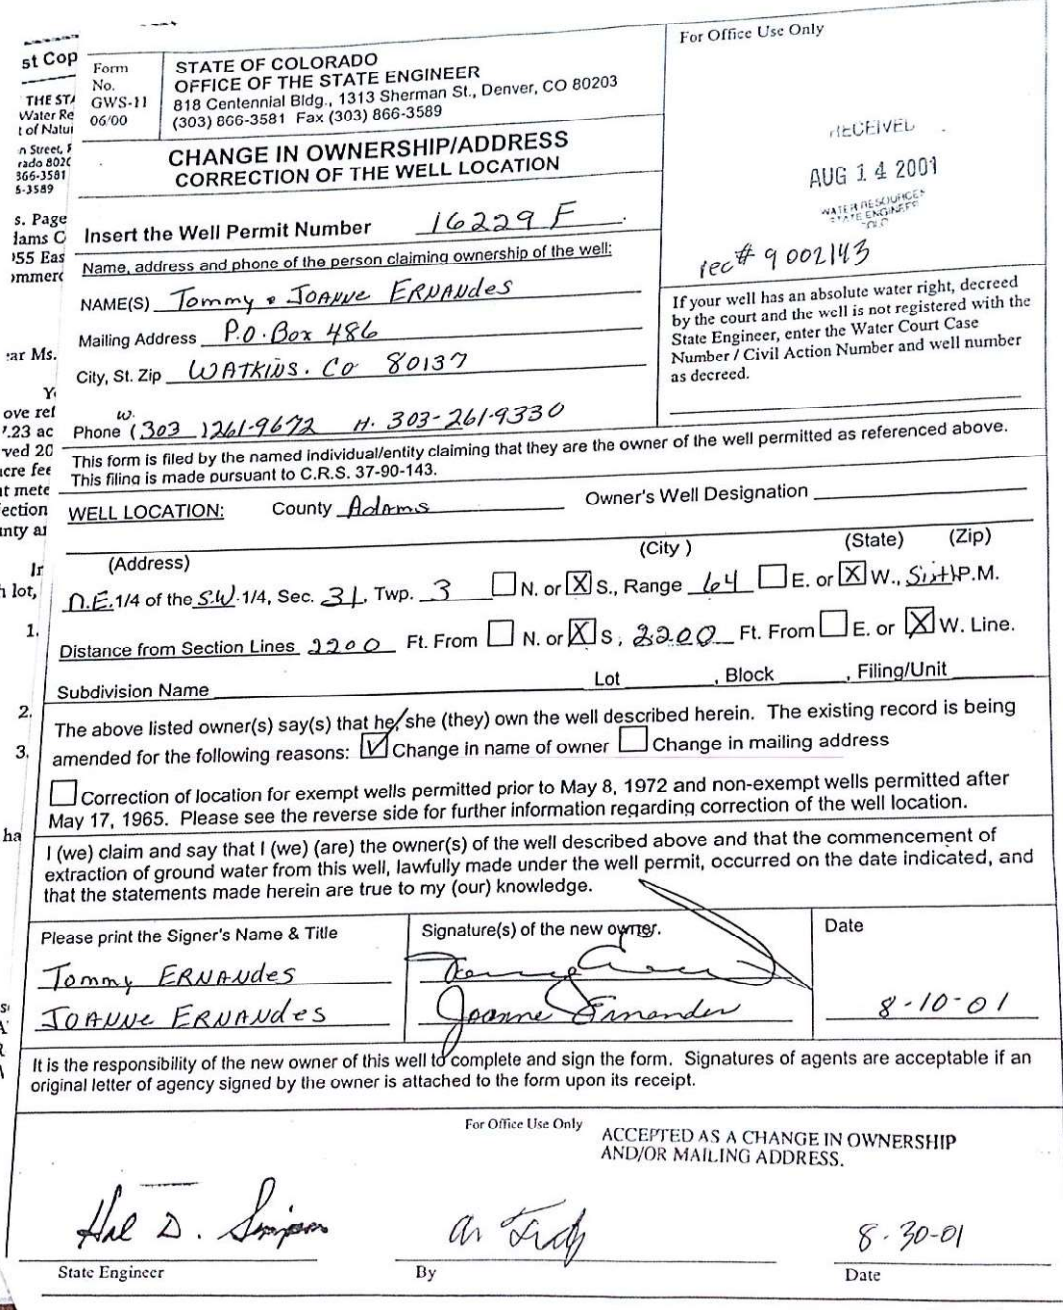 st Cop
THE STA
Water Re
t of Natui
n Street, S
rado 8020
366-3581
5-3589
s. Page
lams C
55 Eas
ommerc
ar Ms.
ove ref
7.23 ac
ved 20
acre fee
at mete
ection
nty ar
In
h lot,
1.
2.
3.
ha
Form
No.
GWS-11
06/00
STATE OF COLORADO
OFFICE OF THE STATE ENGINEER
818 Centennial Bldg., 1313 Sherman St., Denver, CO 80203
(303) 866-3581 Fax (303) 866-3589
For Office Use Only
CHANGE IN OWNERSHIP/ADDRESS
CORRECTION OF THE WELL LOCATION
RECEIVED
AUG 14 2001
WATER RESOURCES
STATE ENGINEER
COLO
rec# 9002143
Insert the Well Permit Number 16229 F
Name, address and phone of the person claiming ownership of the well:
NAME(S) Tommy & JOANNe ERNANdes
Mailing Address P.O. Box 486
City, St. Zip WATKINS. CO 80137
Phone W. (303) 261-9672 H. 303-261-9330
If your well has an absolute water right, decreed
by the court and the well is not registered with the
State Engineer, enter the Water Court Case
Number / Civil Action Number and well number
as decreed.
This form is filed by the named individual/entity claiming that they are the owner of the well permitted as referenced above.
This filing is made pursuant to C.R.S. 37-90-143.
WELL LOCATION: County Adams Owner's Well Designation
(Address) (City ) (State) (Zip)
N.E. 1/4 of the S.W. 1/4, Sec. 31, Twp. 3 N. or X S., Range 64 E. or X W., Sixth P.M.
Distance from Section Lines 2200 Ft. From N. or X S, 2200 Ft. From E. or X W. Line.
Subdivision Name Lot , Block , Filing/Unit
The above listed owner(s) say(s) that he/she (they) own the well described herein. The existing record is being
amended for the following reasons: ✓ Change in name of owner Change in mailing address
Correction of location for exempt wells permitted prior to May 8, 1972 and non-exempt wells permitted after
May 17, 1965. Please see the reverse side for further information regarding correction of the well location.
I (we) claim and say that I (we) (are) the owner(s) of the well described above and that the commencement of
extraction of ground water from this well, lawfully made under the well permit, occurred on the date indicated, and
that the statements made herein are true to my (our) knowledge.
Please print the Signer's Name & Title
Tommy ERNANdes
JOANNe ERNANdes
Signature(s) of the new owner.
Joanne Ernandes
Date
8-10-01
It is the responsibility of the new owner of this well to complete and sign the form. Signatures of agents are acceptable if an
original letter of agency signed by the owner is attached to the form upon its receipt.
For Office Use Only
ACCEPTED AS A CHANGE IN OWNERSHIP
AND/OR MAILING ADDRESS.
Hal D. Simpson
State Engineer
By
8-30-01
Date